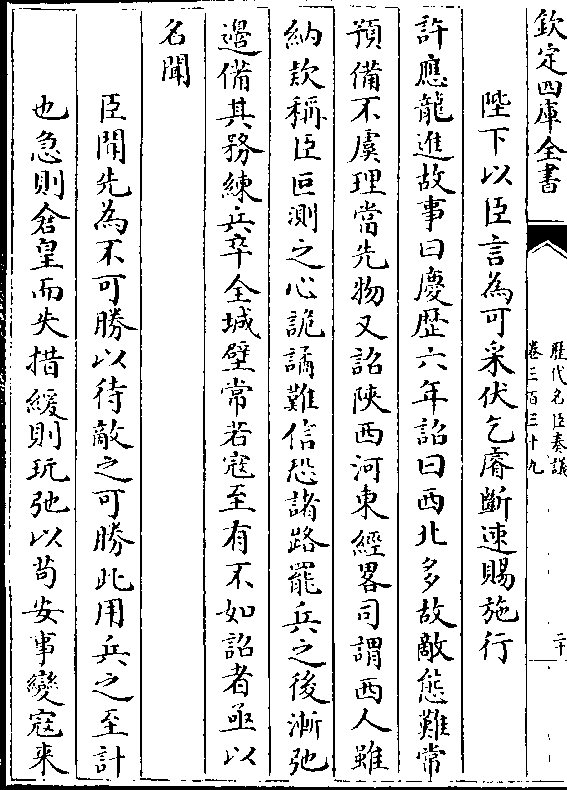 欽定四庫全書
歷代名臣奏議
卷三百三十九
二十
陛下以臣言為可采伏乞睿斷速賜施行
許應龍進故事曰慶歷六年詔曰西北多故敵態難常
預備不虞理當先物又詔陝西河東經畧司謂西人雖
納款稱臣叵測之心詭譎難信恐諸路罷兵之後漸弛
邊備其務練兵卒全城壁常若寇至有不如詔者亟以
名聞
臣聞先為不可勝以待敵之可勝此用兵之至計
也急則倉皇而失措緩則玩弛以茍安事變寇来